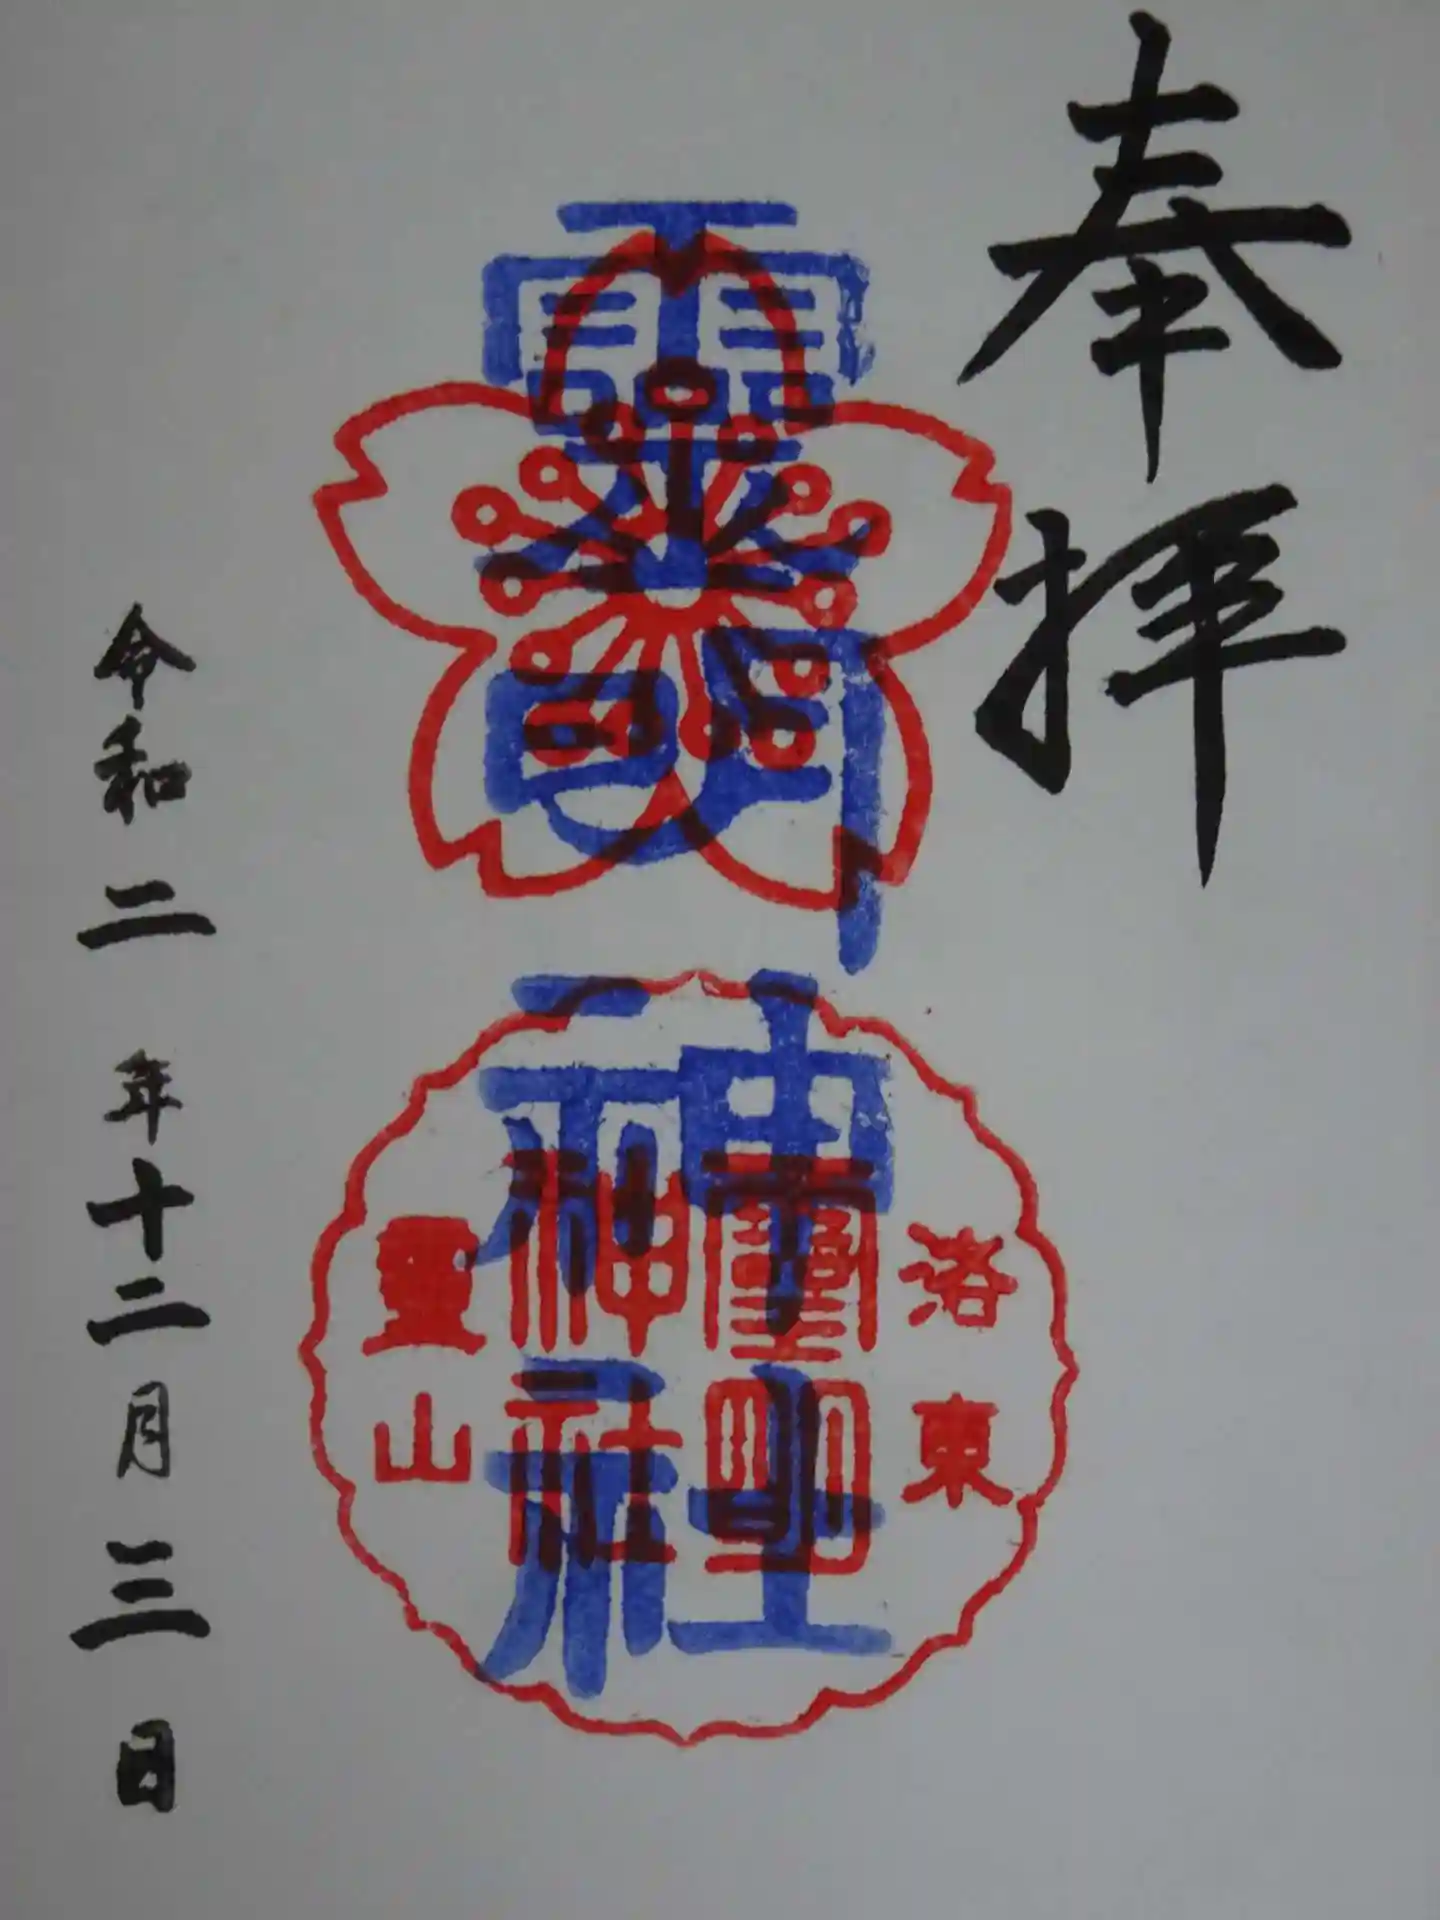 奉拝
靈明神社
洛東
靈明
神社
靈山
令和二年十二月三日